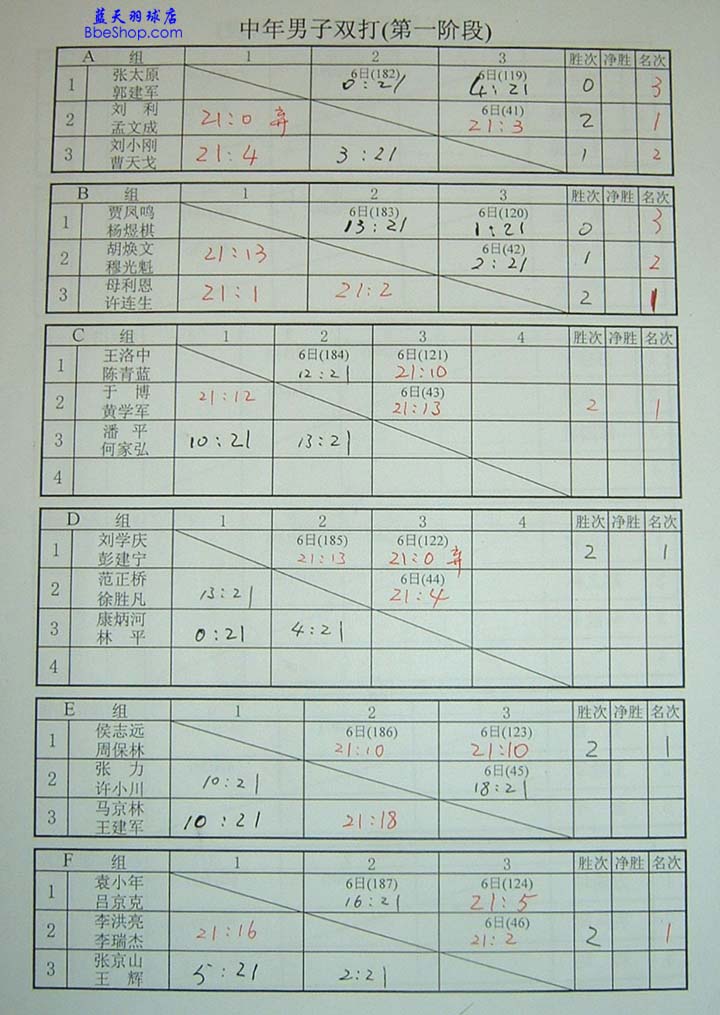 蓝天羽球店
BbeShop.com
中年男子双打(第一阶段)
A 组 1 2 3 胜次 净胜 名次
1 张太原 郭建军 6日(182) 0:21 6日(119) 4:21 0 3
2 刘利 孟文成 21:0 弃 6日(41) 21:3 2 1
3 刘小刚 曹天戈 21:4 3:21 1 2
B 组 1 2 3 胜次 净胜 名次
1 贾凤鸣 杨煜棋 6日(183) 13:21 6日(120) 1:21 0 3
2 胡焕文 穆光魁 21:13 6日(42) 2:21 1 2
3 母利恩 许连生 21:1 21:2 2 1
C 组 1 2 3 4 胜次 净胜 名次
1 王洛中 陈青蓝 6日(184) 12:21 6日(121) 21:10
2 于博 黄学军 21:12 6日(43) 21:13 2 1
3 潘平 何家弘 10:21 13:21
4
D 组 1 2 3 4 胜次 净胜 名次
1 刘学庆 彭建宁 6日(185) 21:13 6日(122) 21:0 弃 2 1
2 范正桥 徐胜凡 13:21 6日(44) 21:4
3 康炳河 林平 0:21 4:21
4
E 组 1 2 3 胜次 净胜 名次
1 侯志远 周保林 6日(186) 21:10 6日(123) 21:10 2 1
2 张力 许小川 10:21 6日(45) 18:21
3 马京林 王建军 10:21 21:18
F 组 1 2 3 胜次 净胜 名次
1 袁小年 吕京克 6日(187) 16:21 6日(124) 21:5
2 李洪亮 李瑞杰 21:16 6日(46) 21:2 2 1
3 张京山 王辉 5:21 2:21